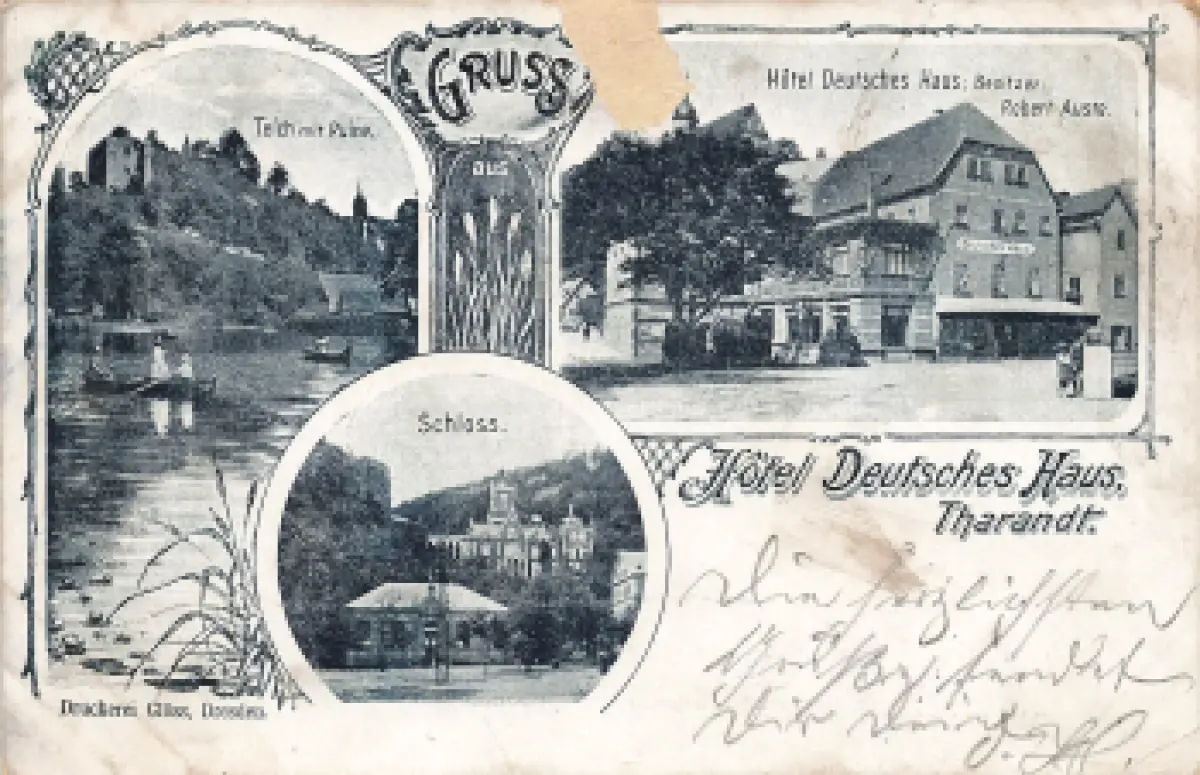 GRUSS
aus
Teich mit Ruine.
Hôtel Deutsches Haus, Besitzer:
Robert Auste.
Schloss.
Hôtel Deutsches Haus,
Tharandt.
Die herzlichsten
Grüße sendet
Dir
Druckerei Glöss, Dresden.